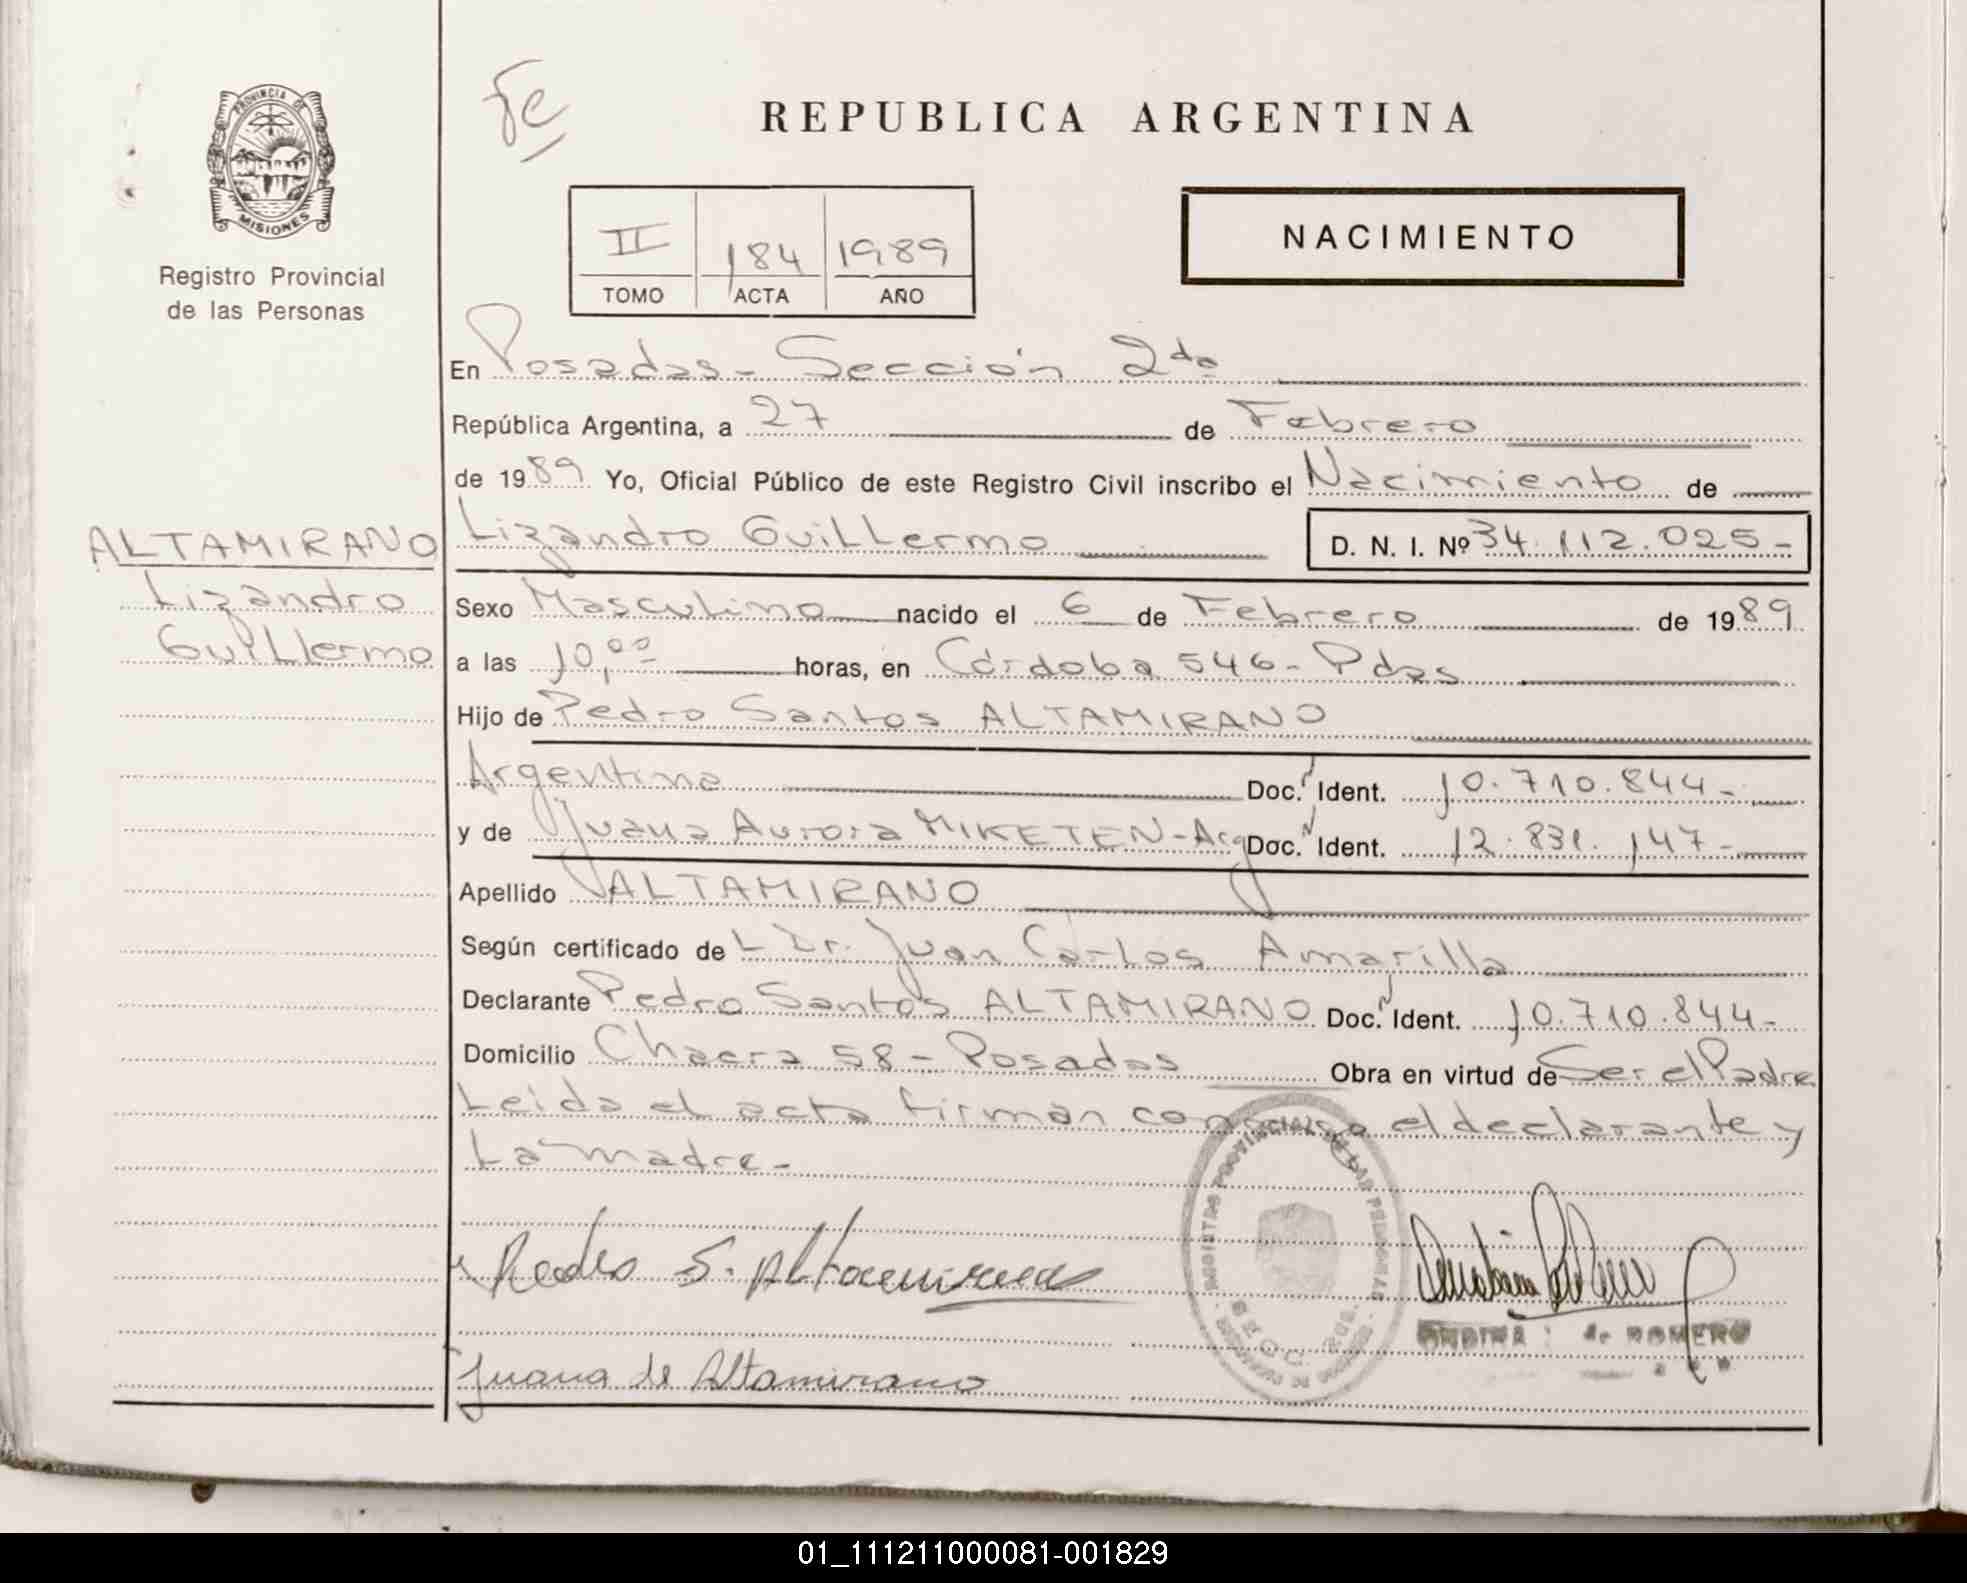 Fe
REPUBLICA ARGENTINA
PROVINCIA DE
MISIONES
Registro Provincial
de las Personas
II 184 1989
TOMO ACTA AÑO
NACIMIENTO
En Posadas - Sección 2da
República Argentina, a 27 de Febrero
de 1989 Yo, Oficial Público de este Registro Civil inscribo el Nacimiento de
ALTAMIRANO
Lizandro
Guillermo
Lizandro Guillermo D. N. I. Nº 34.112.025-
Sexo Masculino nacido el 6 de Febrero de 1989
a las 10,00 horas, en Córdoba 546 - Pdas
Hijo de Pedro Santos ALTAMIRANO
Argentina Doc. Ident. 10.710.844-
y de Juana Aurora MIKETEN - Arg Doc. Ident. 12.831.147-
Apellido ALTAMIRANO
Según certificado de L Dr. Juan Carlos Amarilla
Declarante Pedro Santos ALTAMIRANO Doc. Ident. 10.710.844-
Domicilio Chacra 58 - Posadas Obra en virtud de Ser el Padre
Leida el acta firman conmigo el declarante y
La madre-
Pedro S. Altamirano
Juana de Altamirano
de ROMERO
01_111211000081-001829